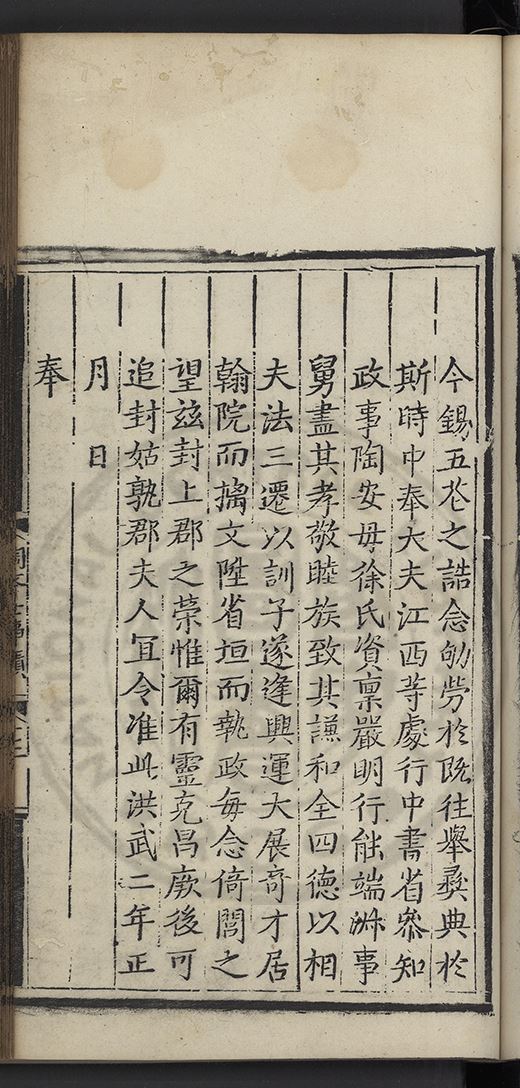 今錫五花之誥念劬勞於既往舉彛典於
斯時中奉大夫江西等處行中書省叅知
政事陶安母徐氏資稟嚴明行能端淋事
舅盡其孝敬睦族致其謙和全四德以相
夫法三遷以訓子遂逢興運大展竒才居
翰院而摛文陞省垣而執政每念倚閭之
望兹封上郡之榮惟爾有靈克昌厥後可
追封姑孰郡夫人冝令准此洪武二年正
月　日
奉